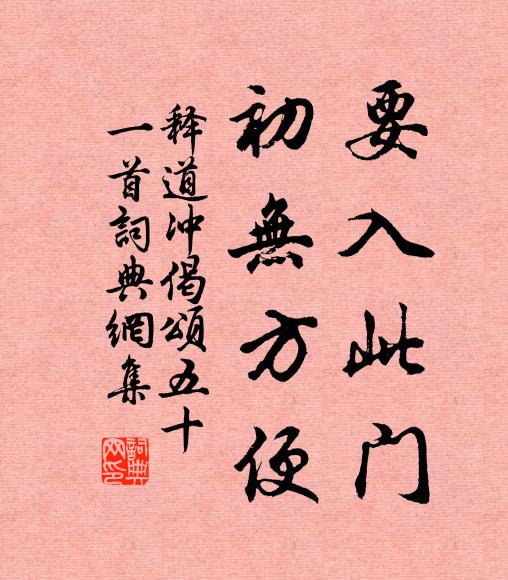 要入此门
初無方便
释道冲偈頌五十
一首詞典網集
詞典网印